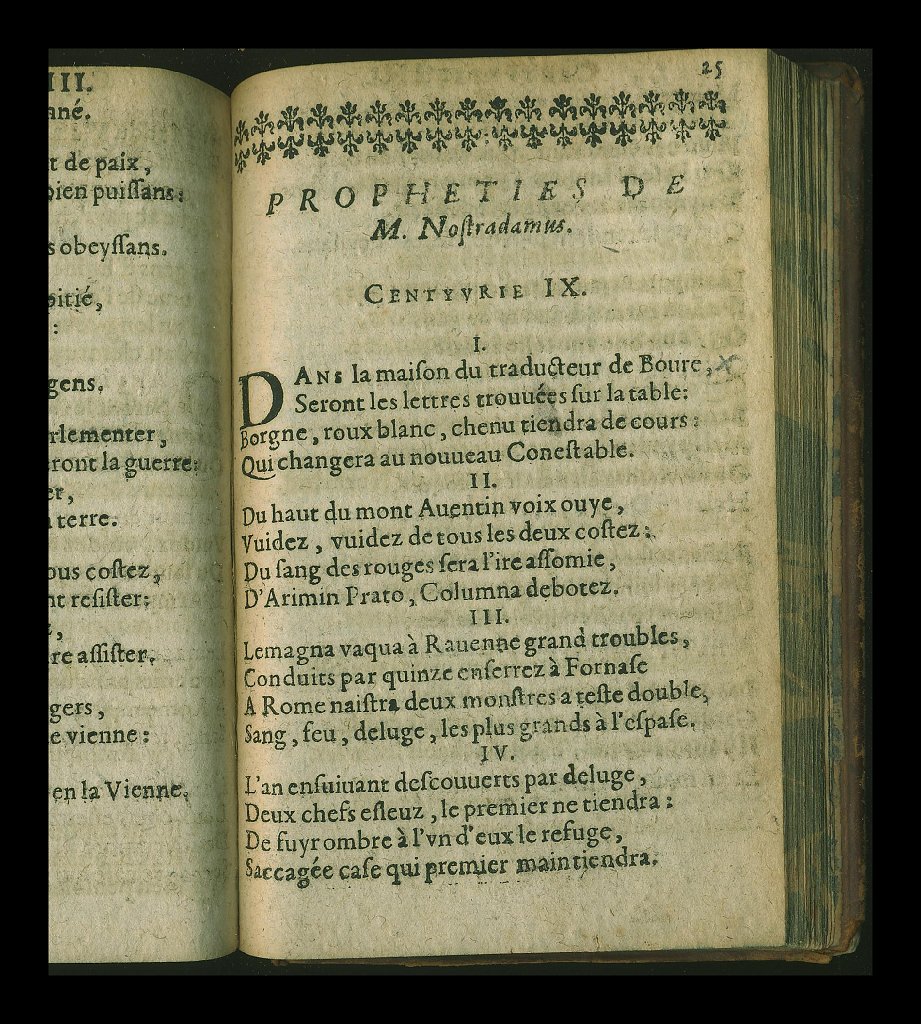 III.
ané.
t de paix,
bien puiſſans:
s obeyſſans.
pitié,
:
gens.
rlementer,
eront la guerre:
er,
terre.
ous coſtez,
nt reſiſter:
,
re aſſiſter.
gers,
e vienne:
en la Vienne.
25
PROPHETIES DE
M. Noſtradamus.
CENTVRIE IX.
I.
DANs la maiſon du traducteur de Boure,
Seront les lettres trouuées ſur la table:
Borgne, roux blanc, chenu tiendra de cours:
Qui changera au nouueau Coneſtable.
II.
Du haut du mont Auentin voix ouye,
Vuidez, vuidez de tous les deux coſtez:
Du ſang des rouges ſera l'ire aſſomie,
D'Arimin Prato, Columna debotez.
III.
Lemagna vaqua à Rauenne grand troubles,
Conduits par quinze enſerrez à Fornaſe
A Rome naiſtra deux monſtres a teſte double,
Sang, feu, deluge, les plus grands à l'eſpaſe.
IV.
L'an enſuiuant deſcouuerts par deluge,
Deux chefs eſleuz, le premier ne tiendra:
De fuyr ombre à l'vn d'eux le refuge,
Saccagée caſe qui premier maintiendra.